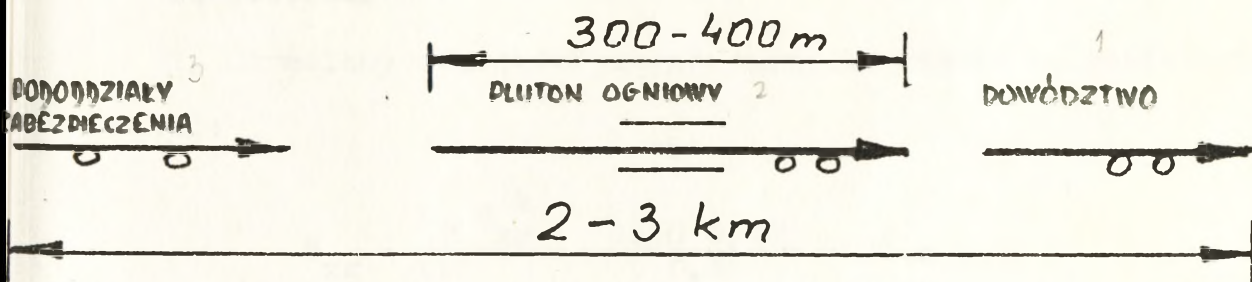 300-400m
1
3
PODODDZIAŁY
ZABEZPIECZENIA
PLUTON OGNIOWY 2
DOWÓDZTWO
2-3 km